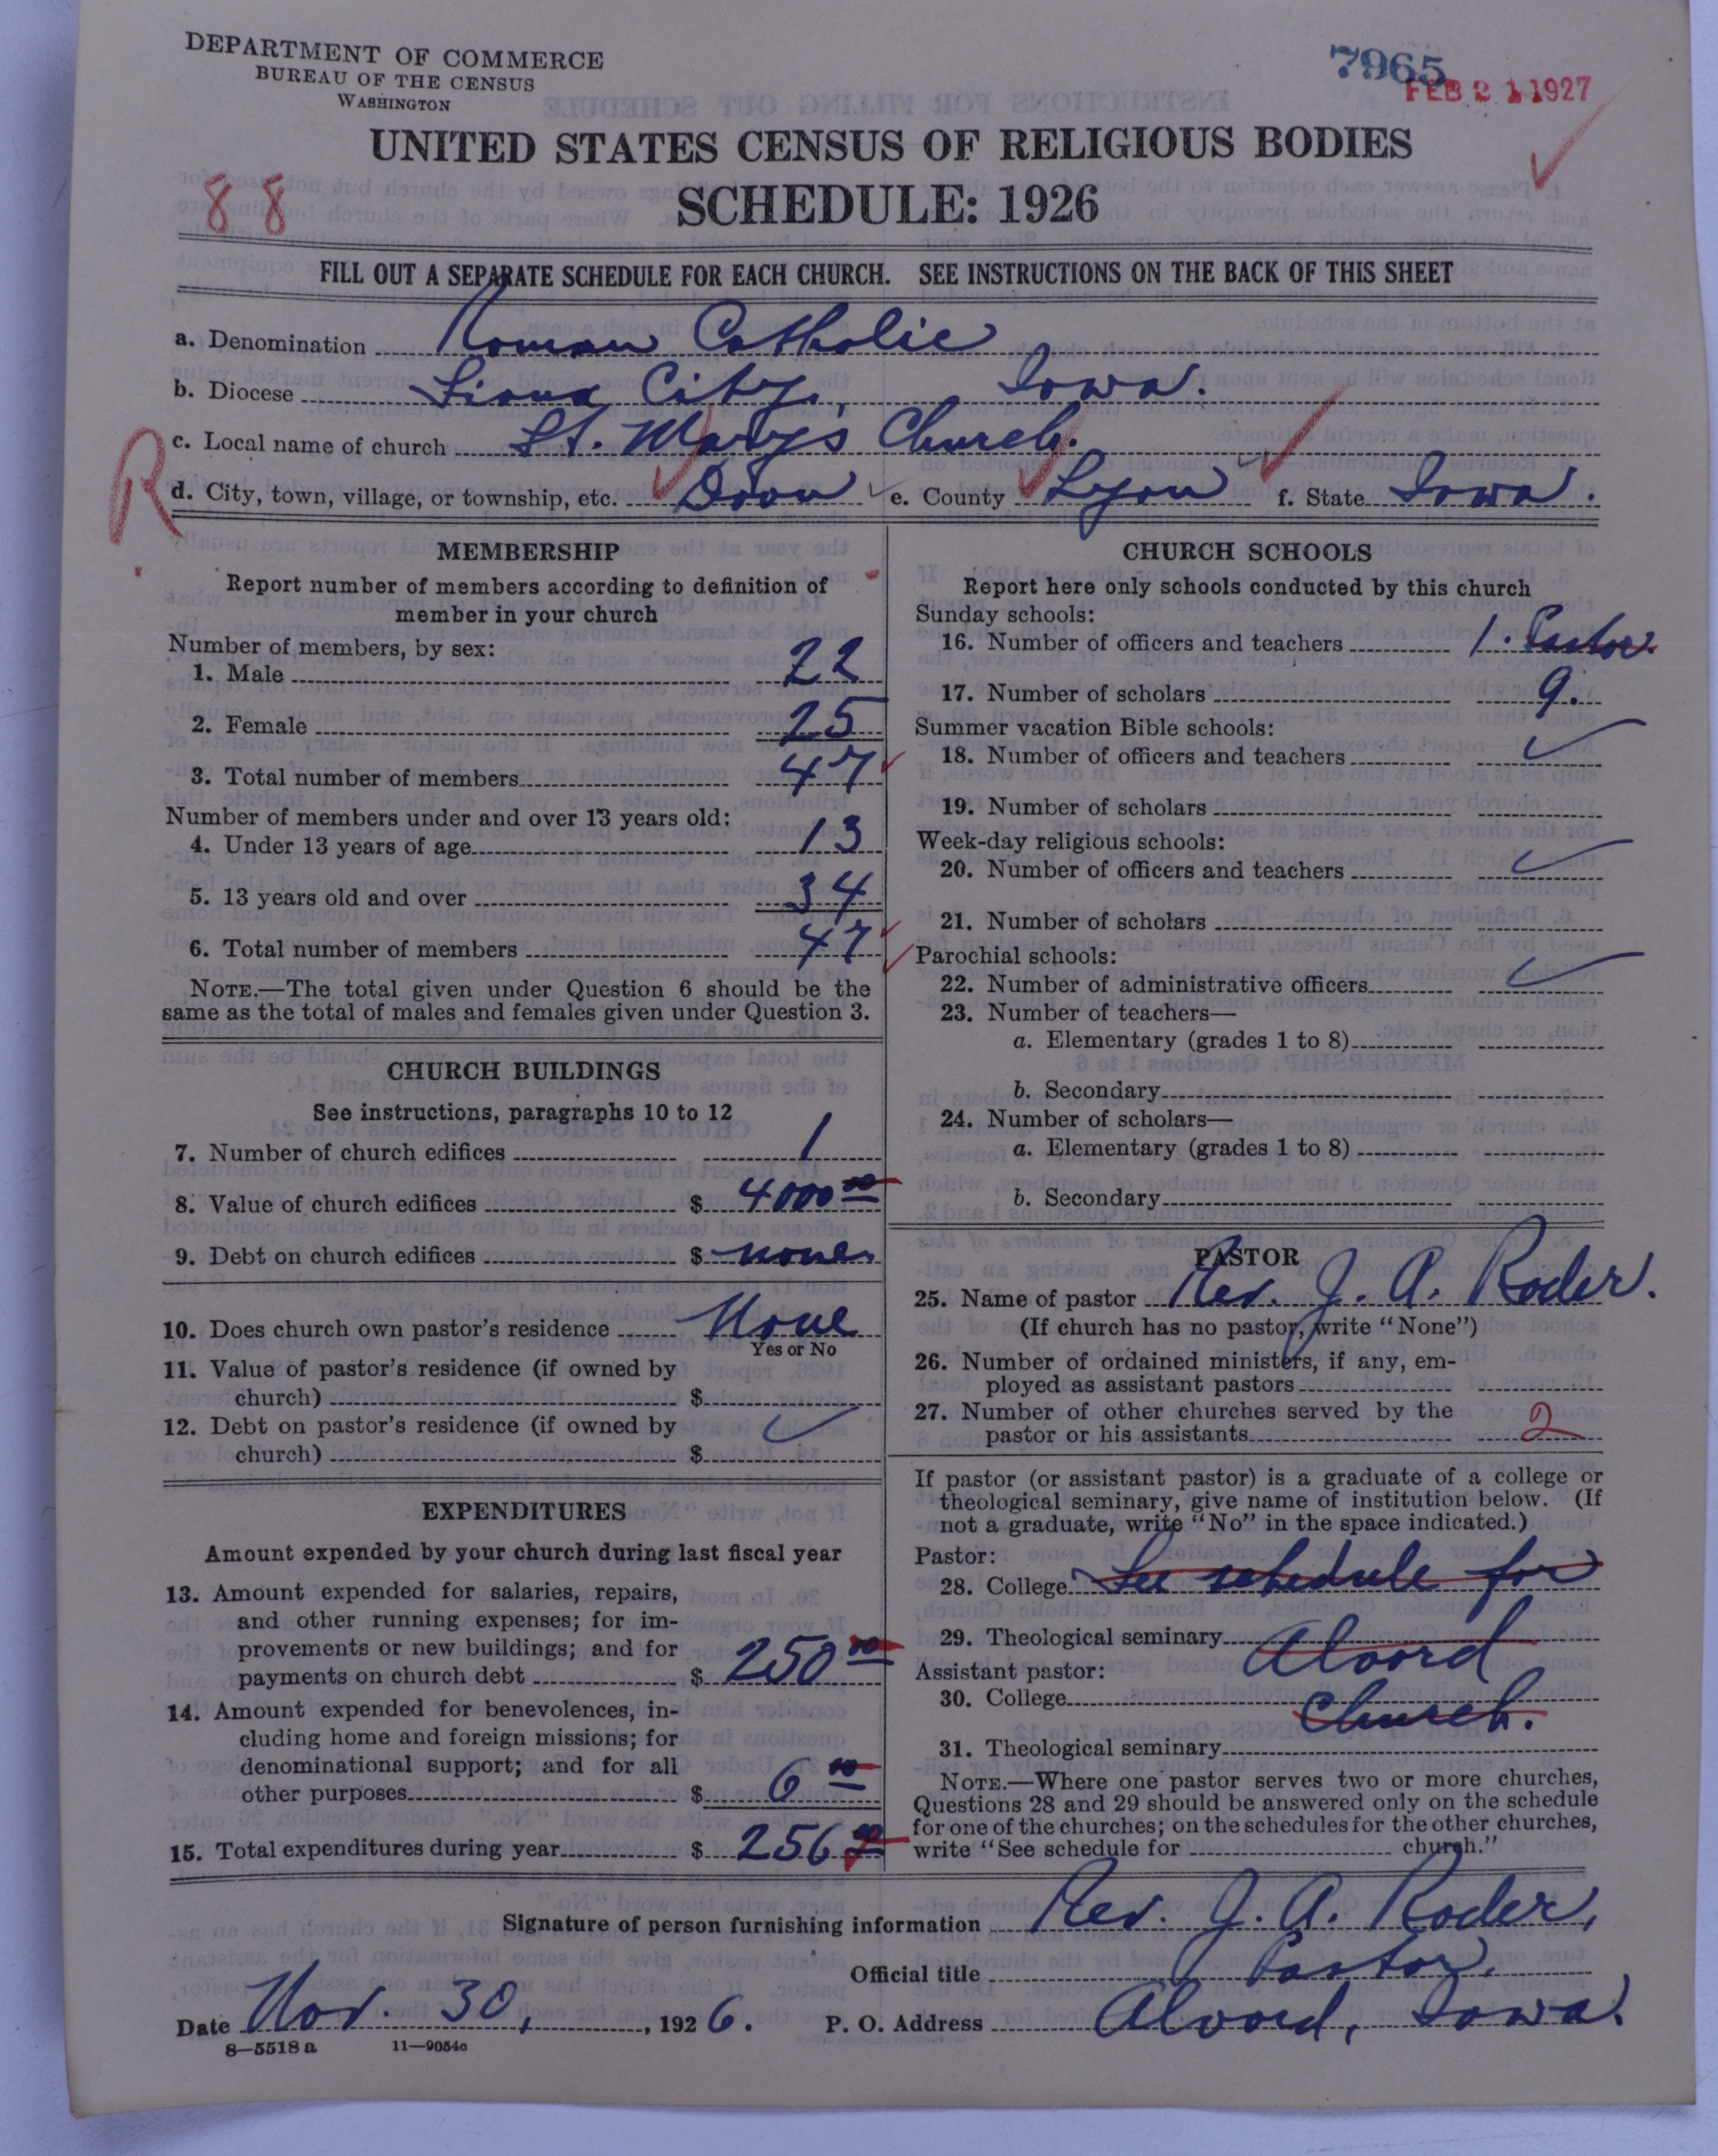 DEPARTMENT OF COMMERCE
BUREAU OF THE CENSUS
WASHINGTON
7965
FEB 21 1927
UNITED STATES CENSUS OF RELIGIOUS BODIES
SCHEDULE: 1926
88
FILL OUT A SEPARATE SCHEDULE FOR EACH CHURCH. SEE INSTRUCTIONS ON THE BACK OF THIS SHEET
a. Denomination Roman Catholic
b. Diocese Sioux City, Iowa.
c. Local name of church St. Marys Church.
R
d. City, town, village, or township, etc. Doon e. County Lyon f. State Iowa.
MEMBERSHIP
Report number of members according to definition of
member in your church
Number of members, by sex:
1. Male 22
2. Female 25
3. Total number of members 47
Number of members under and over 13 years old:
4. Under 13 years of age 13
5. 13 years old and over 34
6. Total number of members 47
NOTE.—The total given under Question 6 should be the
same as the total of males and females given under Question 3.
CHURCH BUILDINGS
See instructions, paragraphs 10 to 12
7. Number of church edifices 1
8. Value of church edifices $ 4000 00
9. Debt on church edifices $ none
10. Does church own pastor's residence None
Yes or No
11. Value of pastor's residence (if owned by
church) $
12. Debt on pastor's residence (if owned by
church) $
EXPENDITURES
Amount expended by your church during last fiscal year
13. Amount expended for salaries, repairs,
and other running expenses; for im-
provements or new buildings; and for
payments on church debt $ 250 00
14. Amount expended for benevolences, in-
cluding home and foreign missions; for
denominational support; and for all
other purposes $ 6 00
15. Total expenditures during year $ 256
CHURCH SCHOOLS
Report here only schools conducted by this church
Sunday schools:
16. Number of officers and teachers 1. Pastor.
17. Number of scholars 9.
Summer vacation Bible schools:
18. Number of officers and teachers
19. Number of scholars
Week-day religious schools:
20. Number of officers and teachers
21. Number of scholars
Parochial schools:
22. Number of administrative officers
23. Number of teachers—
a. Elementary (grades 1 to 8)
b. Secondary
24. Number of scholars—
a. Elementary (grades 1 to 8)
b. Secondary
PASTOR
25. Name of pastor Rev. J. A. Roder.
(If church has no pastor, write "None")
26. Number of ordained ministers, if any, em-
ployed as assistant pastors
27. Number of other churches served by the
pastor or his assistants 2
If pastor (or assistant pastor) is a graduate of a college or
theological seminary, give name of institution below. (If
not a graduate, write "No" in the space indicated.)
Pastor:
28. College See schedule for
29. Theological seminary Alvord
Assistant pastor:
30. College Church.
31. Theological seminary
NOTE.—Where one pastor serves two or more churches,
Questions 28 and 29 should be answered only on the schedule
for one of the churches; on the schedules for the other churches,
write "See schedule for church."
Signature of person furnishing information Rev. J. A. Roder,
Official title Pastor.
Date Nov. 30, 1926. P. O. Address Alvord, Iowa.
8—5518 a 11—9054c